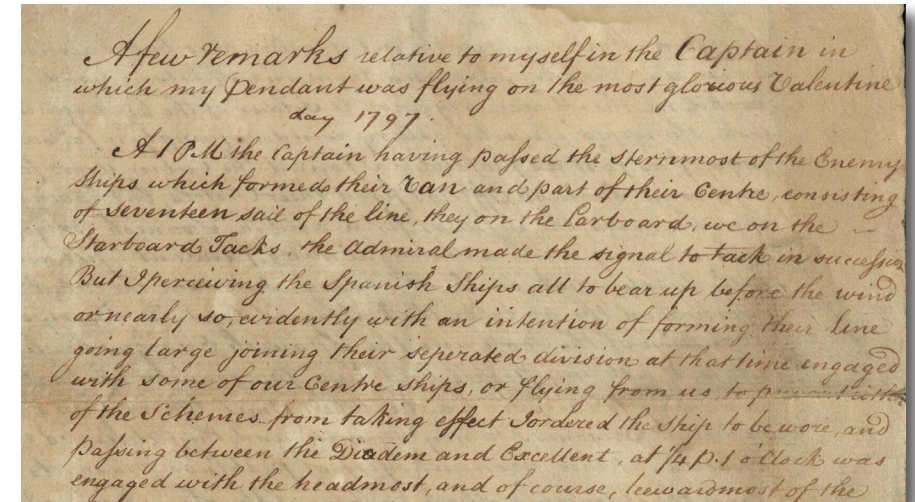 A few remarks relative to myself in the Captain in
which my Pendant was flying on the most glorious Valentine
day 1797.
At 1 PM the Captain having passed the sternmost of the Enemy
Ships which formed their Van and part of their Centre, consisting
of seventeen sail of the line, they on the Larboard, we on the
Starboard Tacks, the Admiral made the signal to tack in succession
But I perceiving the Spanish Ships all to bear up before the wind
or nearly so, evidently with an intention of forming their line
going large joining their seperated division at that time engaged
with some of our Centre ships, or flying from us, to prevent either
of the Schemes from taking effect I ordered the ship to be wore, and
passing between the Diadem and Excellent, at 1/4 p. 1 o'Clock was
engaged with the headmost, and of course, leewardmost of the